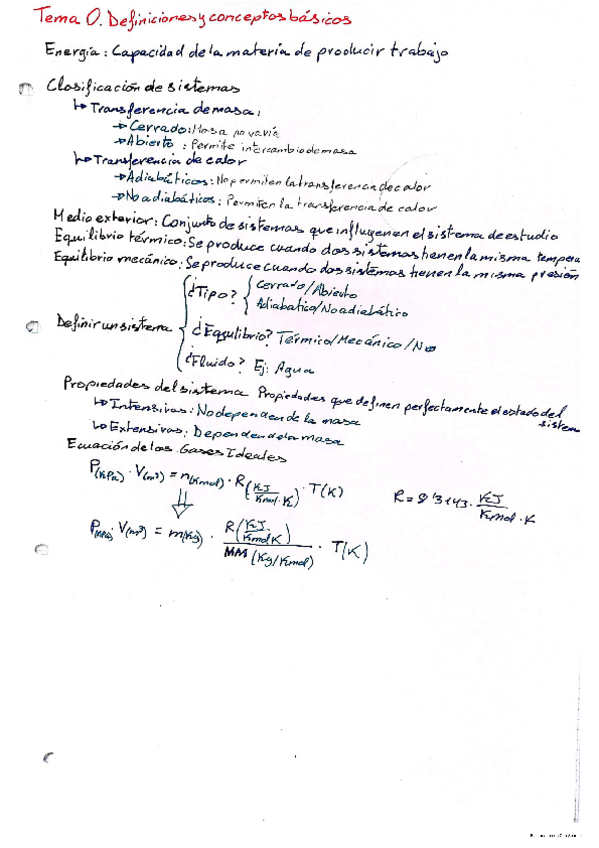 Tema 0. Definiciones y conceptos básicos
Energía: Capacidad de la materia de producir trabajo
Clasificación de sistemas
↳ Transferencia de masa:
→ Cerrado: Masa no varía
→ Abierto: Permite intercambio de masa
↳ Transferencia de calor
→ Adiabáticos: No permiten la transferencia de calor
→ No adiabáticos: Permiten la transferencia de calor
Medio exterior: Conjunto de sistemas que influyen en el sistema de estudio
Equilibrio térmico: Se produce cuando dos sistemas tienen la misma tempera
Equilibrio mecánico: Se produce cuando dos sistemas tienen la misma presión
Definir un sistema
¿Tipo? Cerrado/Abierto
Adiabatico/No adiabático
¿Equilibrio? Térmico/Mecánico/No
¿Fluido? Ej: Agua
Propiedades del sistema Propiedades que definen perfectamente el estado del sistema
↳ Intensivas: No dependen de la masa
↳ Extensivas: Dependen de la masa
Ecuación de los Gases Ideales
P(KPa) · V(m³) = n(Kmol) · R(KJ/Kmol·K) · T(K)
R = 8'3143 · KJ/Kmol·K
⇓
P(KPa) · V(m³) = m(Kg) · R(KJ/Kmol K)/MM(Kg/Kmol) · T(K)